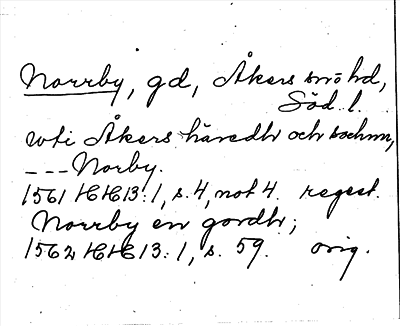 Norrby, gd, Åkers snö hd,
Söd. l.
wti Åkers häredh och sochnn,
--- Norby.
1561 HH 13:1, s. 4, not 4. regest.
Norrby en gordh;
1562 HH 13:1, s. 59. orig.